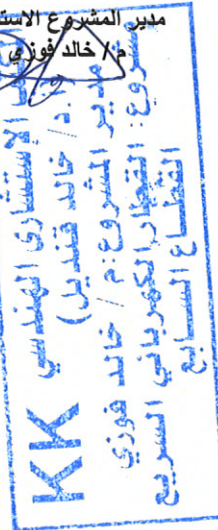 مدير المشروع الاست
م / خالد فوزي
KK الاستشارى الهندسي
د/ خالد قنديل)
مدير المشروع: م/ خالد فوزي
روع: القطار الكهربائي السريع
القطاع السابع